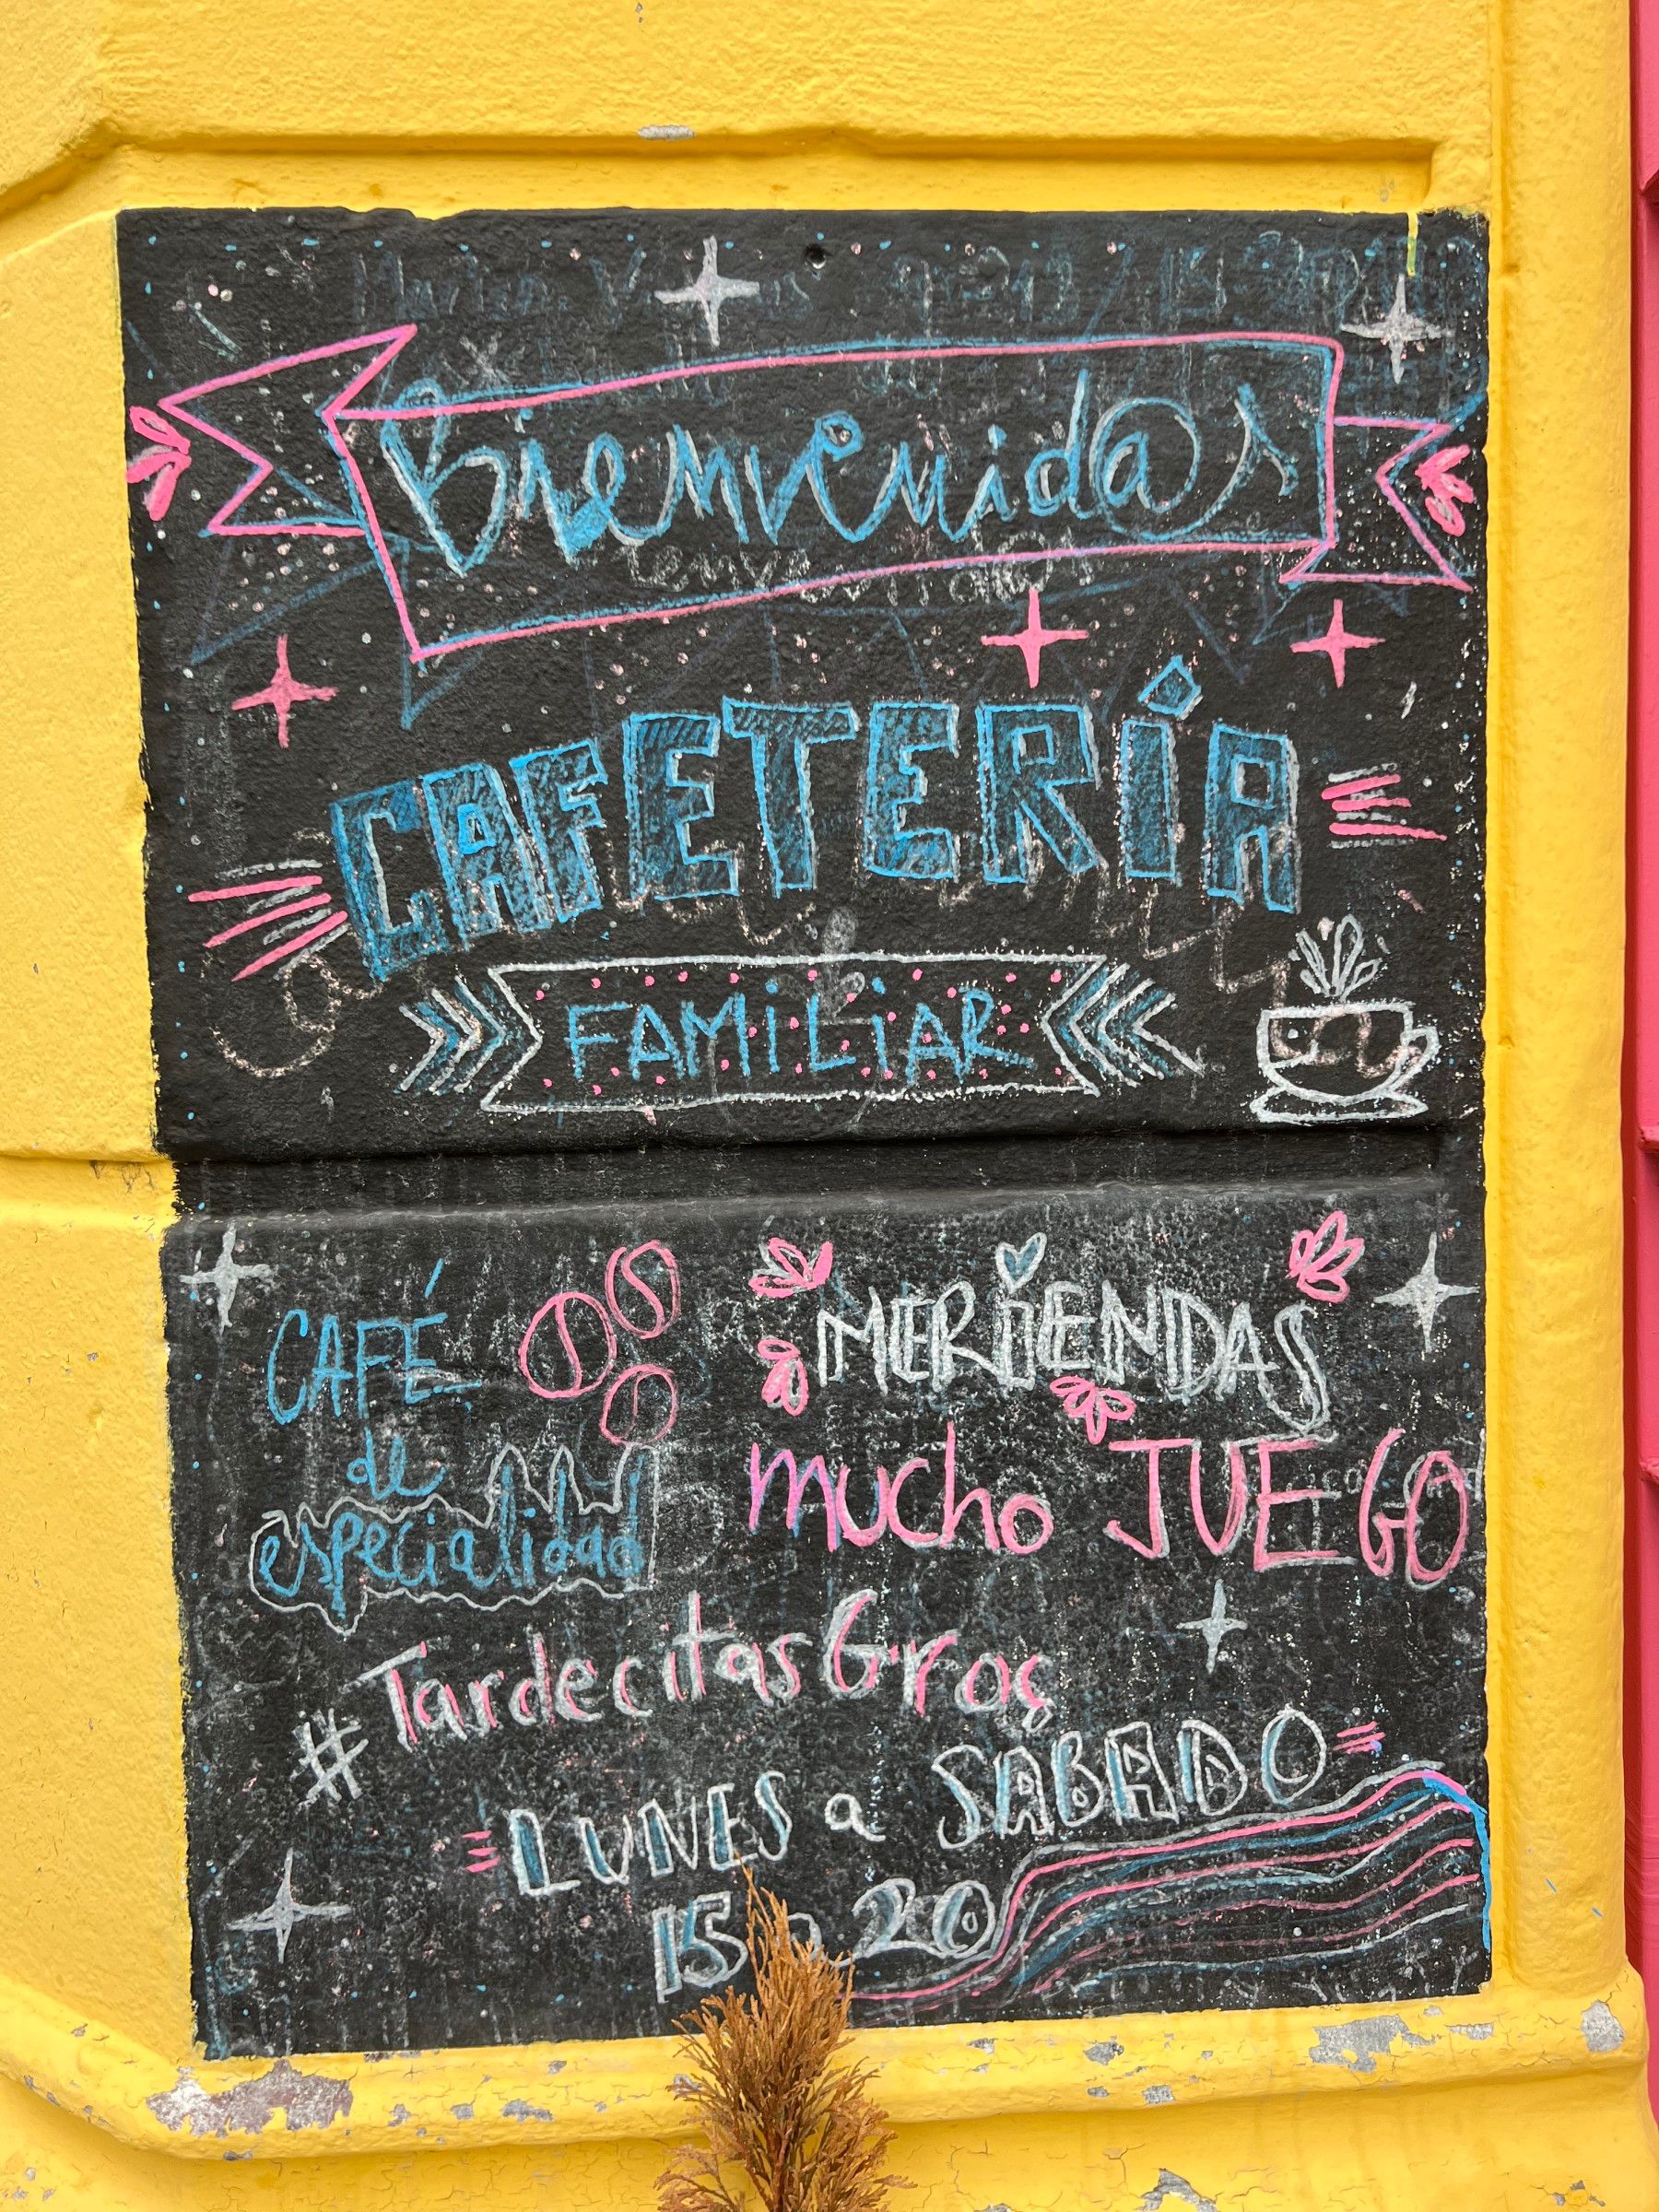 Bienvenid@s
CAFETERÍA
FAMiLiAR
CAFÉ
de
especialidad
MERiENDAS
mucho JUEGO
#TardecitasGros
LUNES a SABADO
15 a 20